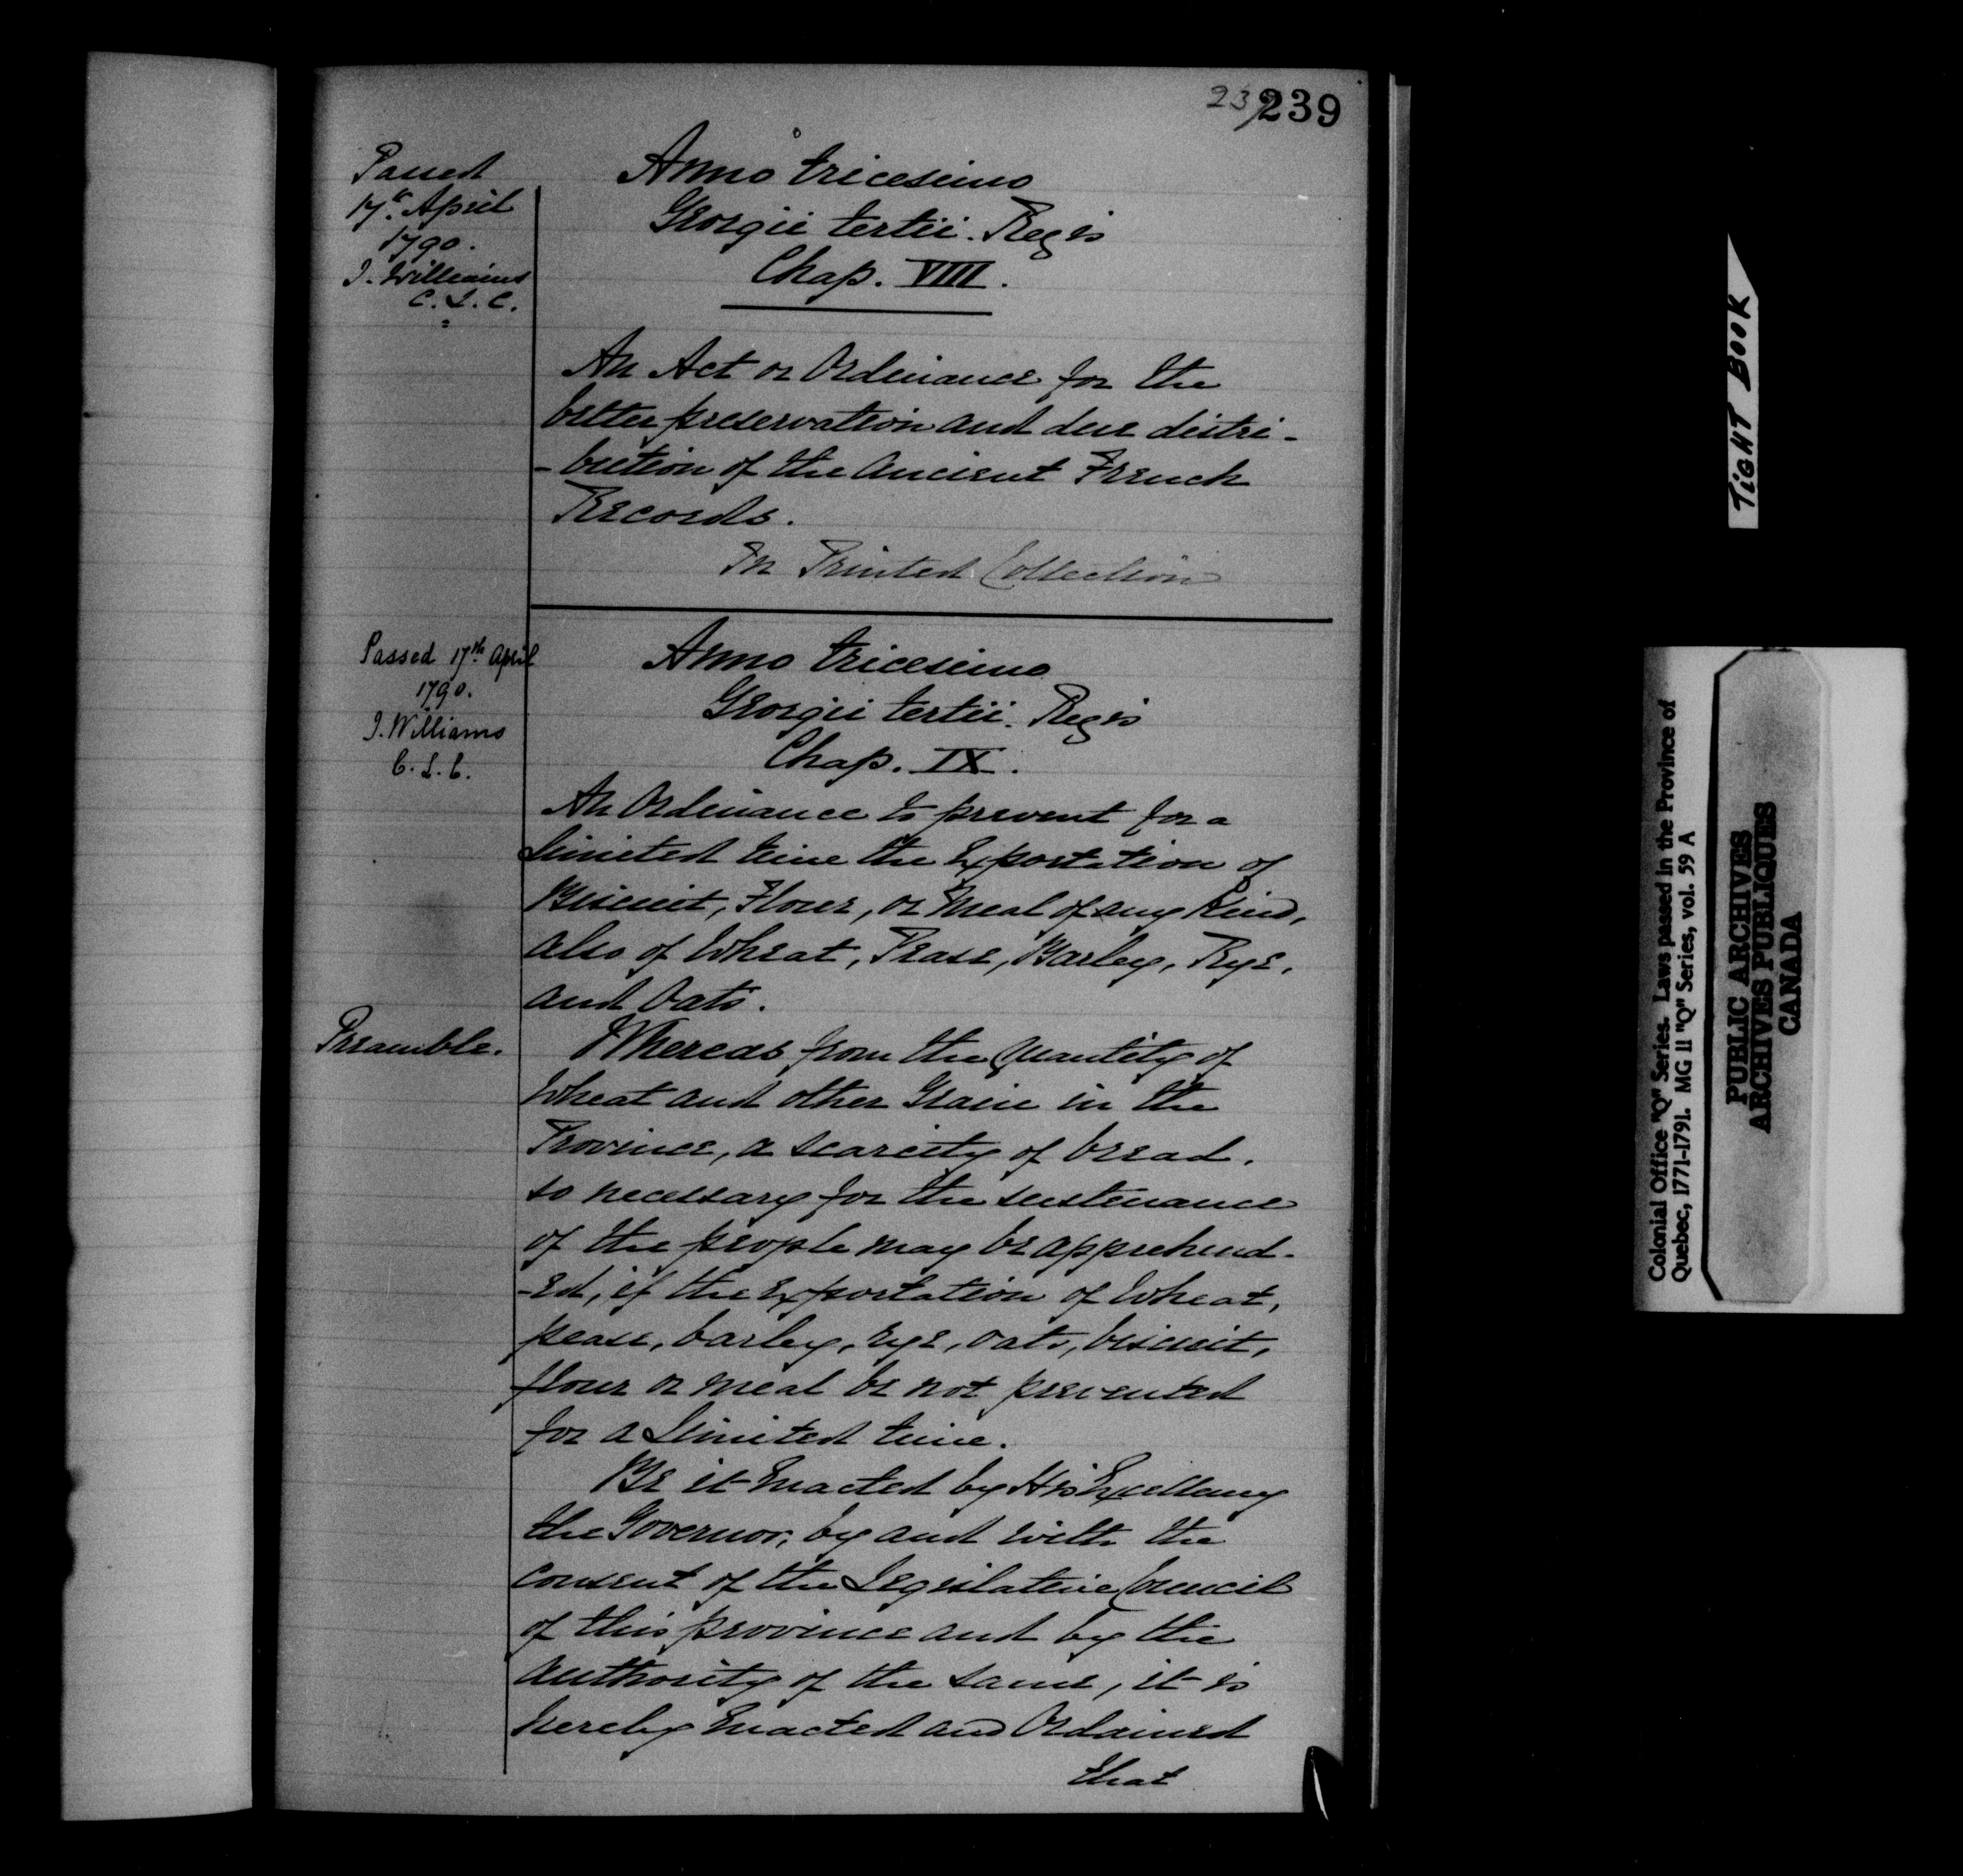 239 239
Passed
17th April
1790.
J. Williams
C. L. C.
Anno tricesimo
Georgii tertii. Regis
Chap. VIII.
An Act or Ordinance for the
better preservation and due distri-
-bution of the Ancient French
Records.
In Printed Collection
Passed 17th April
1790.
J. Williams
C. L. C.
Anno tricesimo
Georgii tertii. Regis
Chap. IX.
An Ordinance to prevent for a
limited time the Exportation of
Biscuit, Flour, or Meal of any Kind,
also of Wheat, Pease, Barley, Rye,
and Oats.
Preamble.
Whereas from the Quantity of
Wheat and other Grain in the
Province, a scarcity of bread,
so necessary for the sustenance
of the people may be apprehend-
-ed, if the Exportation of Wheat,
pease, barley, rye, oats, biscuit,
flour or meal be not prevented
for a limited time.
Be it Enacted by His Excellency
the Governor, by and with the
consent of the Legislative Council
of this province and by the
authority of the same, it is
hereby Enacted and Ordained
that
TIGHT BOOK
Colonial Office "Q" Series. Laws passed in the Province of
Quebec, 1771-1791. MG 11 "Q" Series, vol. 59 A
PUBLIC ARCHIVES
ARCHIVES PUBLIQUES
CANADA